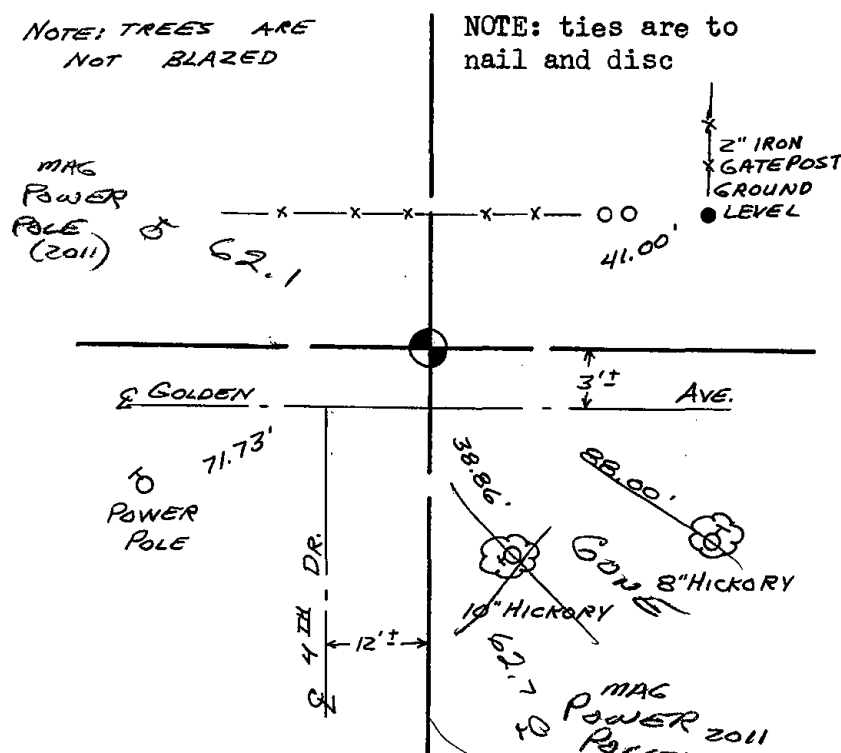 NOTE: TREES ARE
NOT BLAZED
NOTE: ties are to
nail and disc
2" IRON
GATEPOST
GROUND
LEVEL
MAG
POWER
POLE
(2011)
62.1
41.00'
℄ GOLDEN AVE.
3'±
71.73'
POWER
POLE
38.86'
88.00'
GONE
8" HICKORY
10" HICKORY
℄ 4TH DR.
12'±
62.7
MAG
POWER 2011
POLE